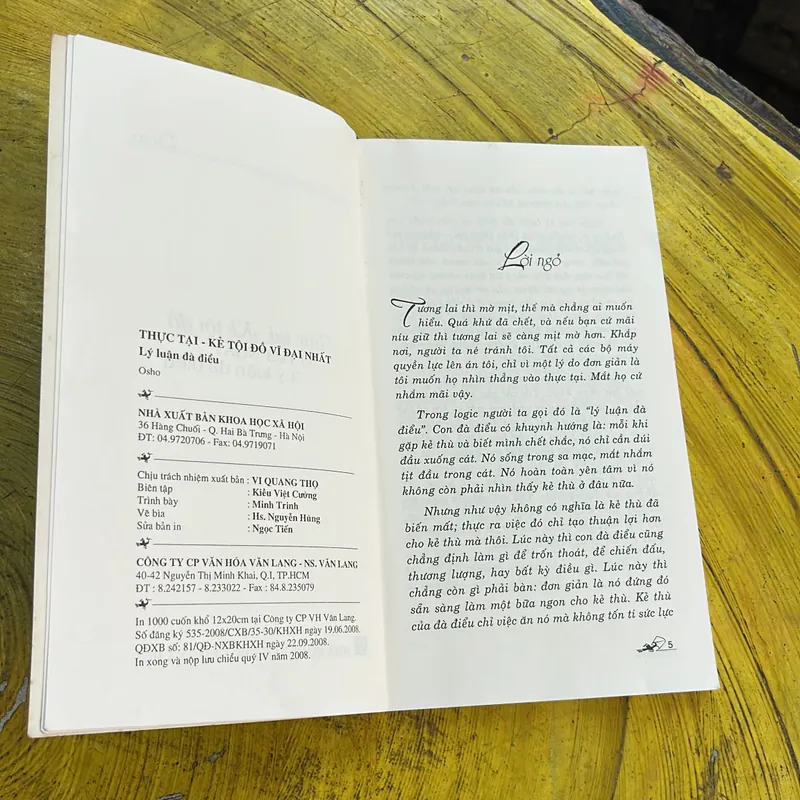 THỰC TẠI - KẺ TỘI ĐỒ VĨ ĐẠI NHẤT
Lý luận đà điểu
Osho
NHÀ XUẤT BẢN KHOA HỌC XÃ HỘI
36 Hàng Chuối - Q. Hai Bà Trưng - Hà Nội
ĐT: 04.9720706 - Fax: 04.9719071
Chịu trách nhiệm xuất bản : VI QUANG THỌ
Biên tập : Kiều Việt Cường
Trình bày : Minh Trinh
Vẽ bìa : Hs. Nguyễn Hùng
Sửa bản in : Ngọc Tiến
CÔNG TY CP VĂN HÓA VĂN LANG - NS. VĂN LANG
40-42 Nguyễn Thị Minh Khai, Q.I, TP.HCM
ĐT : 8.242157 - 8.233022 - Fax : 84.8.235079
In 1000 cuốn khổ 12x20cm tại Công ty CP VH Văn Lang.
Số đăng ký 535-2008/CXB/35-30/KHXH ngày 19.06.2008.
QĐXB số: 81/QĐ-NXBKHXH ngày 22.09.2008.
In xong và nộp lưu chiểu quý IV năm 2008.
Lời ngỏ
Tương lai thì mờ mịt, thế mà chẳng ai muốn
hiểu. Quá khứ đã chết, và nếu bạn cứ mãi
níu giữ thì tương lai sẽ càng mịt mờ hơn. Khắp
nơi, người ta né tránh tôi. Tất cả các bộ máy
quyền lực lên án tôi, chỉ vì một lý do đơn giản là
tôi muốn họ nhìn thẳng vào thực tại. Mắt họ cứ
nhắm mãi vậy.
Trong logic người ta gọi đó là “lý luận đà
điểu”. Con đà điểu có khuynh hướng là: mỗi khi
gặp kẻ thù và biết mình chết chắc, nó chỉ cần dúi
đầu xuống cát. Nó sống trong sa mạc, mắt nhắm
tịt đầu trong cát. Nó hoàn toàn yên tâm vì nó
không còn phải nhìn thấy kẻ thù ở đâu nữa.
Nhưng như vậy không có nghĩa là kẻ thù đã
biến mất; thực ra việc đó chỉ tạo thuận lợi hơn
cho kẻ thù mà thôi. Lúc này thì con đà điểu cũng
chẳng định làm gì để trốn thoát, để chiến đấu,
thương lượng, hay bất kỳ điều gì. Lúc này thì
chẳng còn gì phải bàn: đơn giản là nó đứng đó
sẵn sàng làm một bữa ngon cho kẻ thù. Kẻ thù
của đà điểu chỉ việc ăn nó mà không tốn tí sức lực
5